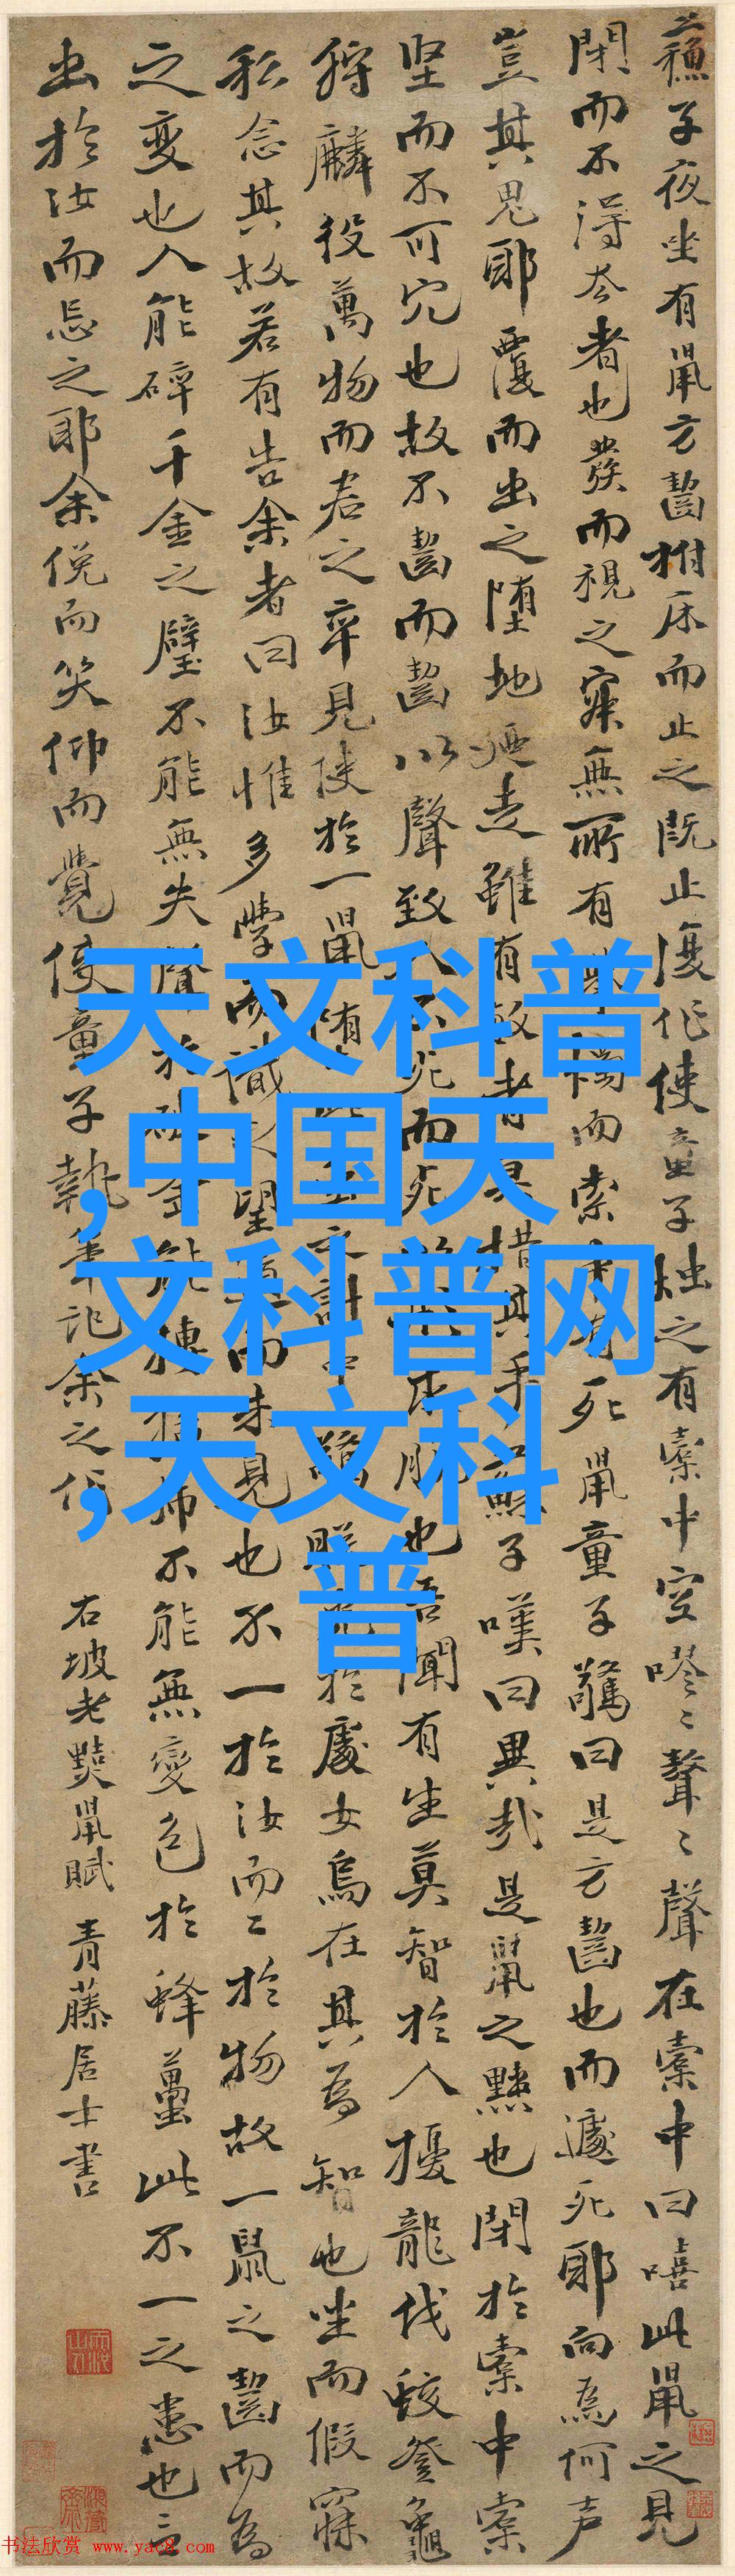 蘇子夜坐有鼠方齧拊床而止之既止復作使童子燭之有橐中空嘐〻聱〻聲在橐中曰嘻此鼠之見
閉而不得去者也發而視之寂無所有燭而索中有死鼠童子驚曰是方齧也而遽死耶向為何声
豈其鬼耶覆而出之墮地走雖有敏者莫措其手蘇子嘆曰異哉是鼠之黠也閉於橐中橐
坚而不可穴也故不齧而齧以聲致人不死而死形求脱也吾聞有生莫智於人擾龍伐蛟登龜
狩麟役萬物而君之卒見使於一鼠墮此之計中驚脱兔於處女烏在其為智也坐而假寐
私念其故若有告余者曰汝惟多學而識之望道而未見也不一於汝而二於物故一鼠之齧而為
之變也人能碎千金之璧不能無失聲於破釜能搏猛虎不能無變色於蜂蠆此不一之患也言
出於汝而忘之耶余俛而笑仰而覺使童子執筆記余之作
右坡老黠鼠賦 青藤居士書
天文科普
,中国天
文科普网
,天文科
普
书法欣赏 www.yac8.com